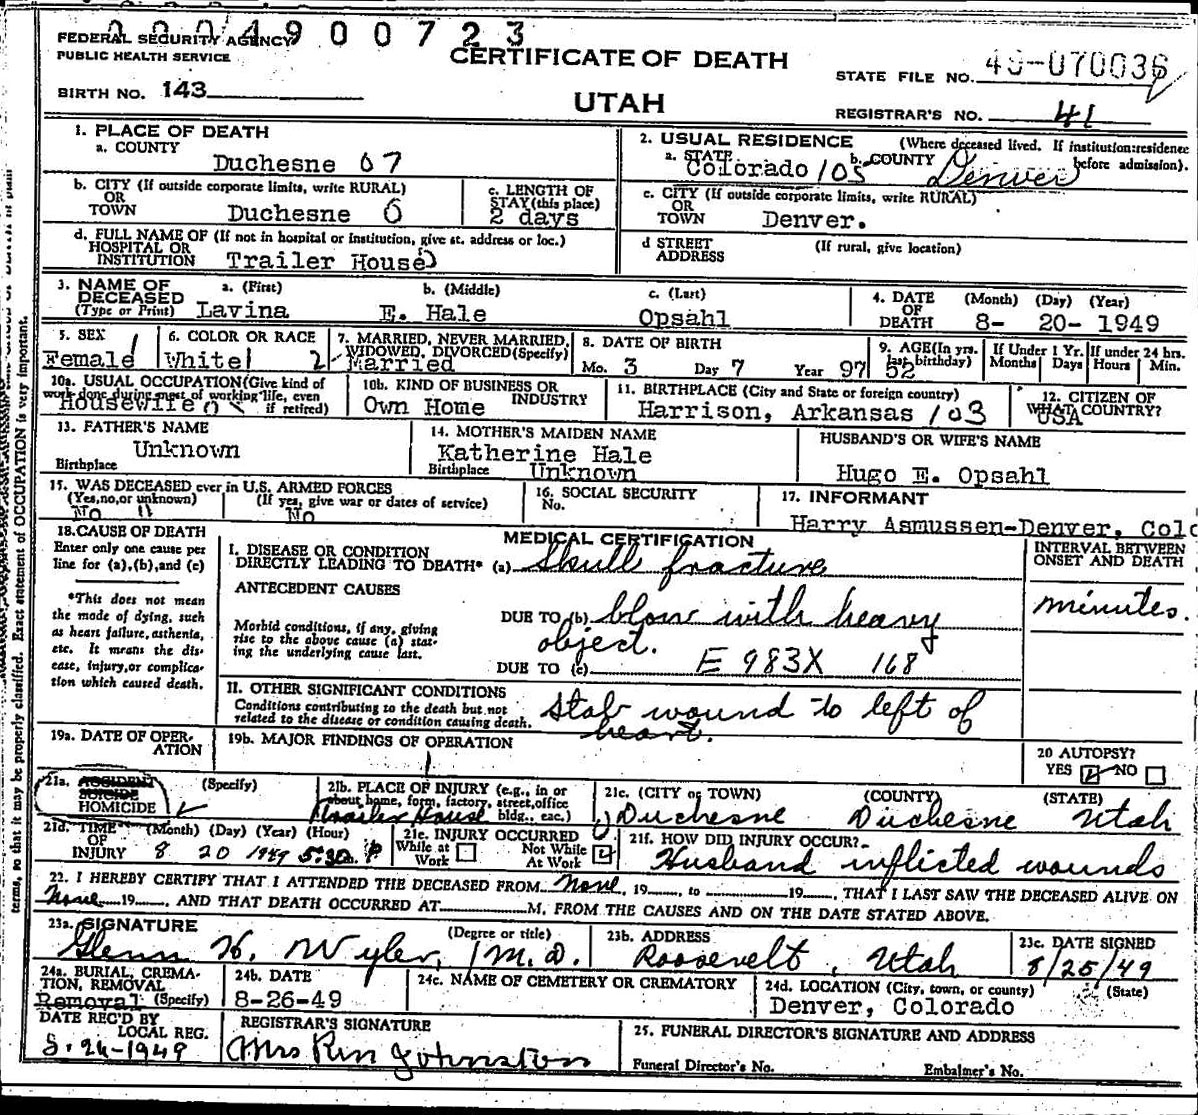 2004900723
FEDERAL SECURITY AGENCY
PUBLIC HEALTH SERVICE
CERTIFICATE OF DEATH
STATE FILE NO. 49-070036
BIRTH NO. 143
UTAH
REGISTRAR'S NO. 41
1. PLACE OF DEATH
a. COUNTY
Duchesne 07
2. USUAL RESIDENCE (Where deceased lived. If institution:residence before admission).
a. STATE Colorado 105 b. COUNTY Denver
b. CITY (If outside corporate limits, write RURAL)
OR
TOWN Duchesne 6
c. LENGTH OF
STAY (this place)
2 days
c. CITY (If outside corporate limits, write RURAL)
OR
TOWN Denver.
d. FULL NAME OF (If not in hospital or institution, give st. address or loc.)
HOSPITAL OR
INSTITUTION Trailer House
d STREET (If rural, give location)
ADDRESS
3. NAME OF DECEASED (Type or Print)
a. (First) b. (Middle) c. (Last)
Lavina E. Hale Opsahl
4. DATE OF DEATH (Month) (Day) (Year)
8- 20- 1949
5. SEX
Female 1
6. COLOR OR RACE
White 1
7. MARRIED, NEVER MARRIED, WIDOWED, DIVORCED (Specify)
2 Married
8. DATE OF BIRTH
Mo. 3 Day 7 Year 97
9. AGE (In yrs. last birthday)
52
If Under 1 Yr. Months Days
If under 24 hrs. Hours Min.
10a. USUAL OCCUPATION (Give kind of work done during most of working life, even if retired)
Housewife
10b. KIND OF BUSINESS OR INDUSTRY
Own Home
11. BIRTHPLACE (City and State or foreign country)
Harrison, Arkansas 103
12. CITIZEN OF WHAT COUNTRY?
USA
13. FATHER'S NAME
Unknown
Birthplace
14. MOTHER'S MAIDEN NAME
Katherine Hale
Birthplace Unknown
HUSBAND'S OR WIFE'S NAME
Hugo E. Opsahl
15. WAS DECEASED ever in U.S. ARMED FORCES
(Yes,no,or unknown) (If yes, give war or dates of service)
No No
16. SOCIAL SECURITY
No.
17. INFORMANT
Harry Asmussen-Denver, Colo
18. CAUSE OF DEATH
Enter only one cause per line for (a),(b),and (c)
*This does not mean the mode of dying, such as heart failure, asthenia, etc. It means the disease, injury, or complication which caused death.
MEDICAL CERTIFICATION
INTERVAL BETWEEN ONSET AND DEATH
I. DISEASE OR CONDITION
DIRECTLY LEADING TO DEATH* (a) Skull fracture
ANTECEDENT CAUSES
Morbid conditions, if any, giving rise to the above cause (a) stating the underlying cause last.
DUE TO (b) blow with heavy object.
minutes.
DUE TO (c) E 983X 168
II. OTHER SIGNIFICANT CONDITIONS
Conditions contributing to the death but not related to the disease or condition causing death.
Stab wound to left of heart.
19a. DATE OF OPERATION
19b. MAJOR FINDINGS OF OPERATION
20 AUTOPSY?
YES NO
21a. ACCIDENT SUICIDE HOMICIDE (Specify)
21b. PLACE OF INJURY (e.g., in or about home, form, factory, street, office bldg., eac.)
Trailer House
21c. (CITY or TOWN) (COUNTY) (STATE)
Duchesne Duchesne Utah
21d. TIME OF INJURY (Month) (Day) (Year) (Hour)
8 20 1949 5:30 P
21e. INJURY OCCURRED
While at Work Not While At Work
21f. HOW DID INJURY OCCUR?
Husband inflicted wounds
22. I HEREBY CERTIFY THAT I ATTENDED THE DECEASED FROM None, 19___, to ___ 19___, THAT I LAST SAW THE DECEASED ALIVE ON
None 19___, AND THAT DEATH OCCURRED AT ___ M. FROM THE CAUSES AND ON THE DATE STATED ABOVE.
23a. SIGNATURE (Degree or title)
Glenn H. Wyler, M.D.
23b. ADDRESS
Roosevelt, Utah
23c. DATE SIGNED
8/25/49
24a. BURIAL, CREMATION, REMOVAL (Specify)
Removal
24b. DATE
8-26-49
24c. NAME OF CEMETERY OR CREMATORY
24d. LOCATION (City, town, or county) (State)
Denver, Colorado
DATE REC'D BY LOCAL REG.
8-26-1949
REGISTRAR'S SIGNATURE
Mrs Ren Johnston
25. FUNERAL DIRECTOR'S SIGNATURE AND ADDRESS
Funeral Director's No. Embalmer's No.
terms, so that it may be properly classified. Exact statement of OCCUPATION is very important.